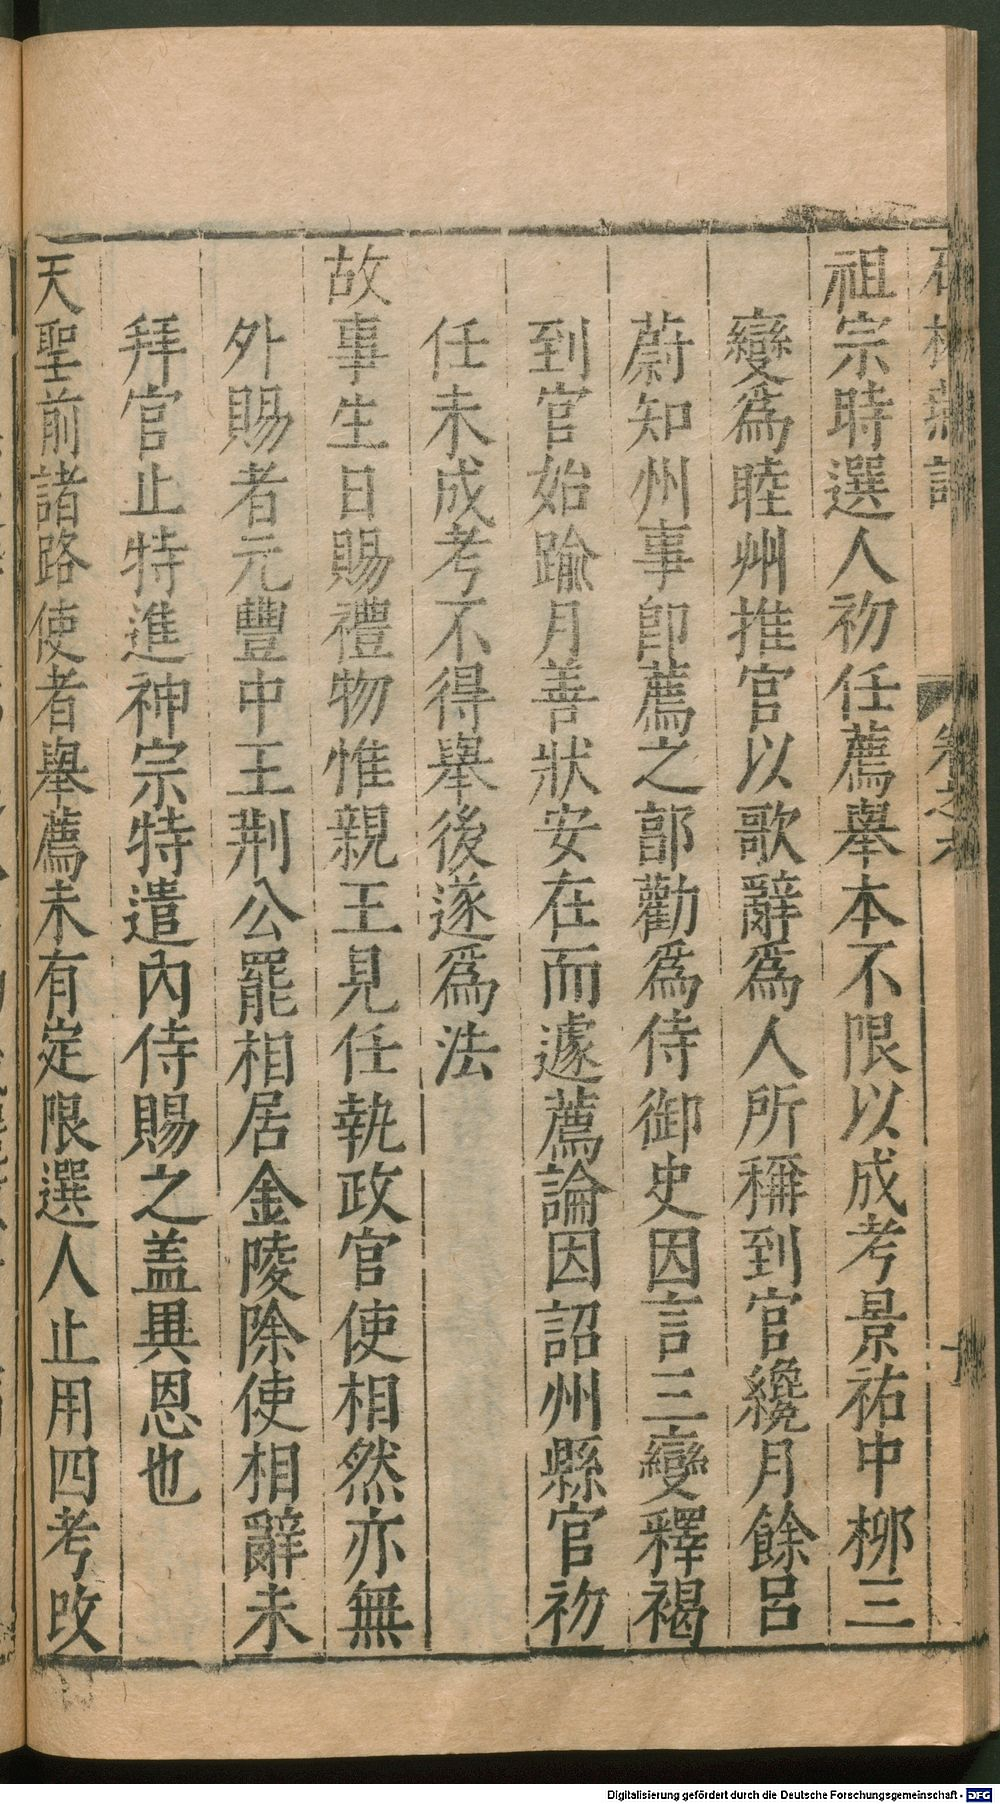 祖宗時選人初任薦舉本不限以成考景祐中栁三
變爲睦州推官以歌辭爲人所稱到官纔月餘呂
蔚知州事卽薦之郭勸爲侍御史因言三變釋褐
到官始踰月善狀安在而遽薦論因詔州縣官初
任未成考不得舉後遂爲法
故事生日賜禮物惟親王見任執政官使相然亦無
外賜者元豐中王荆公罷相居金陵除使相辭未
拜官止特進神宗特遣內侍賜之盖異恩也
天聖前諸路使者舉薦未有定限選人止用四考改
Digitalisierung gefördert durch die Deutsche Forschungsgemeinschaft - DFG